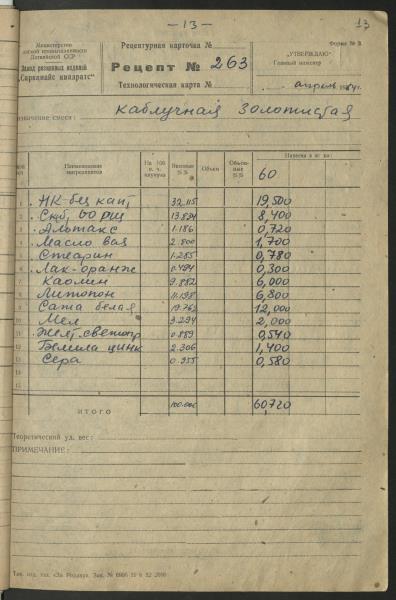 — 13 —
13
Министерство
легкой промышленности
Латвийской ССР
Завод резиновых изделий
„Сарканайс квадратс“
Рецептурная карточка №
Рецепт № 263
Технологическая карта №
Форма № 3
„УТВЕРЖДАЮ“
Главный инженер
апрель
Назначение смеси: каблучная золотистая
Наименование ингредиентов
На 100 в. ч. каучука
Весовые %%
Объем
Объемные %%
Навеска в кг на:
60
1 НК-без кап, 32.115 19,500
2 Скб, 60 рщ 13.834 8,400
3 Альтакс 1.186 0,720
4 Масло ваз 2.800 1,700
5 Стеарин 1.285 0,780
6 Лак-оранж 0.494 0,300
7 Каолин 9.882 6,000
8 Литопон 11.198 6,800
9 Сажа белая 19.763 12,000
10 Мел 3.294 2,000
11 0.889 0,540
12 Белила цинк 2.306 1,400
13 Сера 0.955 0,580
14
15
ИТОГО 60720
Теоретический уд. вес:
ПРИМЕЧАНИЕ: